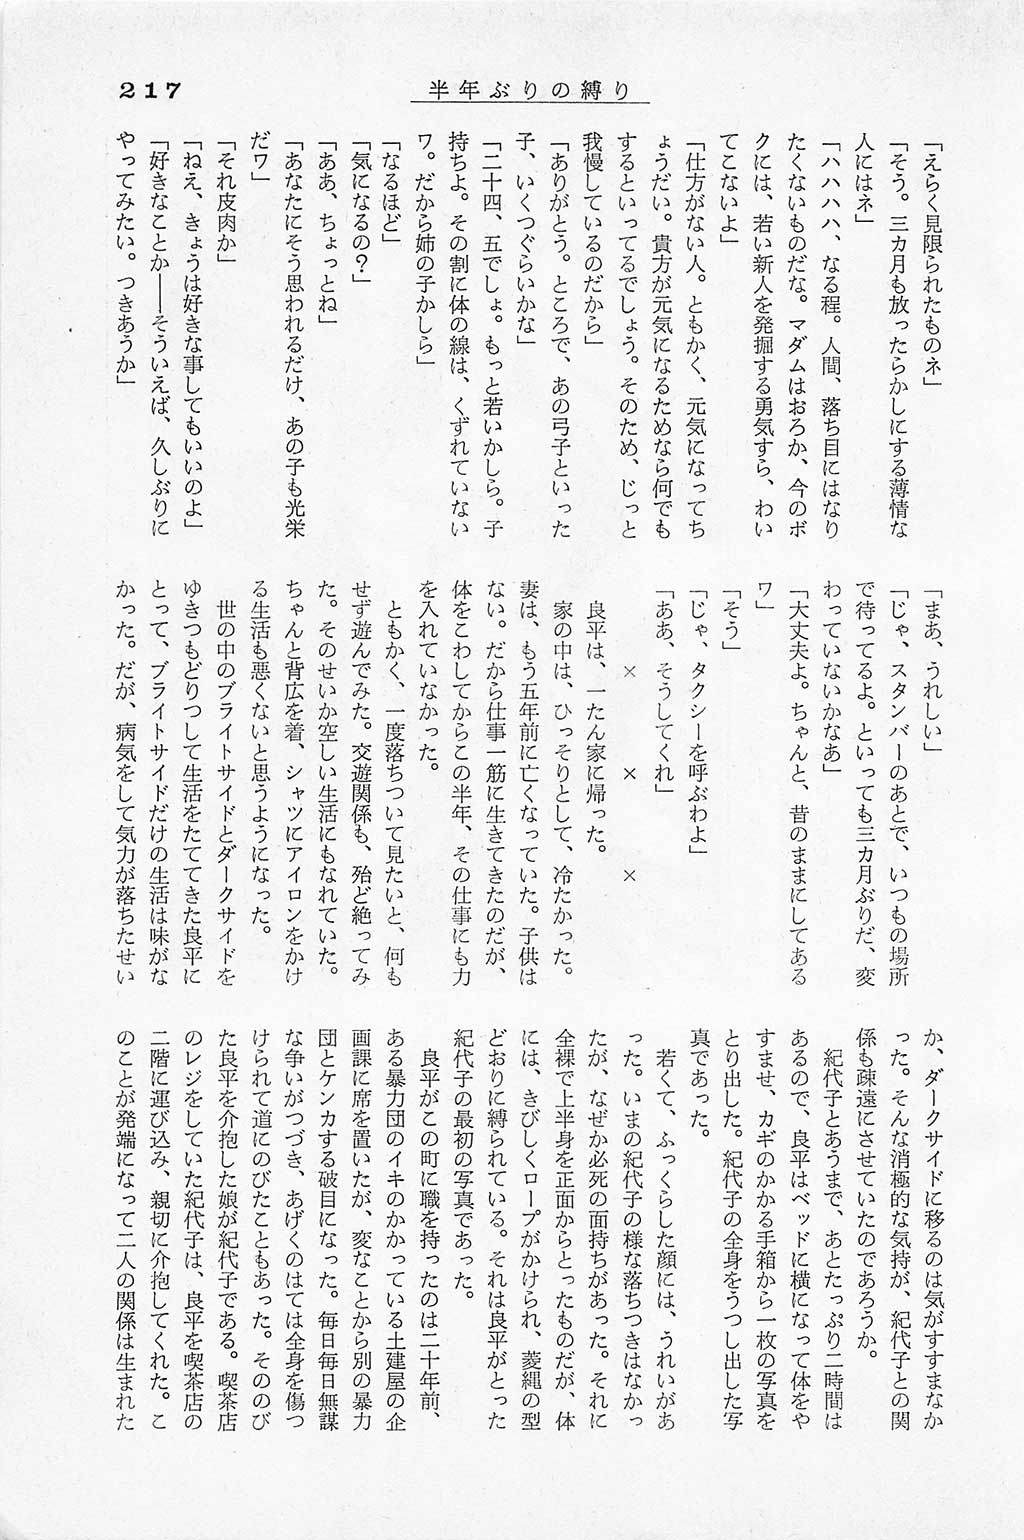 217
半年ぶりの縛り
「えらく見限られたものネ」
「そう。三カ月も放ったらかしにする薄情な
人にはネ」
「ハハハハ、なる程。人間、落ち目にはなり
たくないものだな。マダムはおろか、今のボ
クには、若い新人を発掘する勇気すら、わい
てこないよ」
「仕方がない人。ともかく、元気になってち
ょうだい。貴方が元気になるためなら何でも
するといってるでしょう。そのため、じっと
我慢しているのだから」
「ありがとう。ところで、あの弓子といった
子、いくつぐらいかな」
「二十四、五でしょ。もっと若いかしら。子
持ちよ。その割に体の線は、くずれていない
ワ。だから姉の子かしら」
「なるほど」
「気になるの？」
「ああ、ちょっとね」
「あなたにそう思われるだけ、あの子も光栄
だワ」
「それ皮肉か」
「ねえ、きょうは好きな事してもいいのよ」
「好きなことか――そういえば、久しぶりに
やってみたい。つきあうか」
「まあ、うれしい」
「じゃ、スタンバーのあとで、いつもの場所
で待ってるよ。といっても三カ月ぶりだ、変
わっていないかなあ」
「大丈夫よ。ちゃんと、昔のままにしてある
ワ」
「そう」
「じゃ、タクシーを呼ぶわよ」
「ああ、そうしてくれ」
×　×　×
良平は、一たん家に帰った。
家の中は、ひっそりとして、冷たかった。
妻は、もう五年前に亡くなっていた。子供は
ない。だから仕事一筋に生きてきたのだが、
体をこわしてからこの半年、その仕事にも力
を入れていなかった。
ともかく、一度落ちついて見たいと、何も
せず遊んでみた。交遊関係も、殆ど絶ってみ
た。そのせいか空しい生活にもなれていた。
ちゃんと背広を着、シャツにアイロンをかけ
る生活も悪くないと思うようになった。
世の中のブライトサイドとダークサイドを
ゆきつもどりつして生活をたててきた良平に
とって、ブライトサイドだけの生活は味がな
かった。だが、病気をして気力が落ちたせい
か、ダークサイドに移るのは気がすすまなか
った。そんな消極的な気持が、紀代子との関
係も疎遠にさせていたのであろうか。
紀代子とあうまで、あとたっぷり二時間は
あるので、良平はベッドに横になって体をや
すませ、カギのかかる手箱から一枚の写真を
とり出した。紀代子の全身をうつし出した写
真であった。
若くて、ふっくらした顔には、うれいがあ
った。いまの紀代子の様な落ちつきはなかっ
たが、なぜか必死の面持ちがあった。それに
全裸で上半身を正面からとったものだが、体
には、きびしくロープがかけられ、菱縄の型
どおりに縛られている。それは良平がとった
紀代子の最初の写真であった。
良平がこの町に職を持ったのは二十年前、
ある暴力団のイキのかかっている土建屋の企
画課に席を置いたが、変なことから別の暴力
団とケンカする破目になった。毎日毎日無謀
な争いがつづき、あげくのはては全身を傷つ
けられて道にのびたこともあった。そののび
た良平を介抱した娘が紀代子である。喫茶店
のレジをしていた紀代子は、良平を喫茶店の
二階に運び込み、親切に介抱してくれた。こ
のことが発端になって二人の関係は生まれた